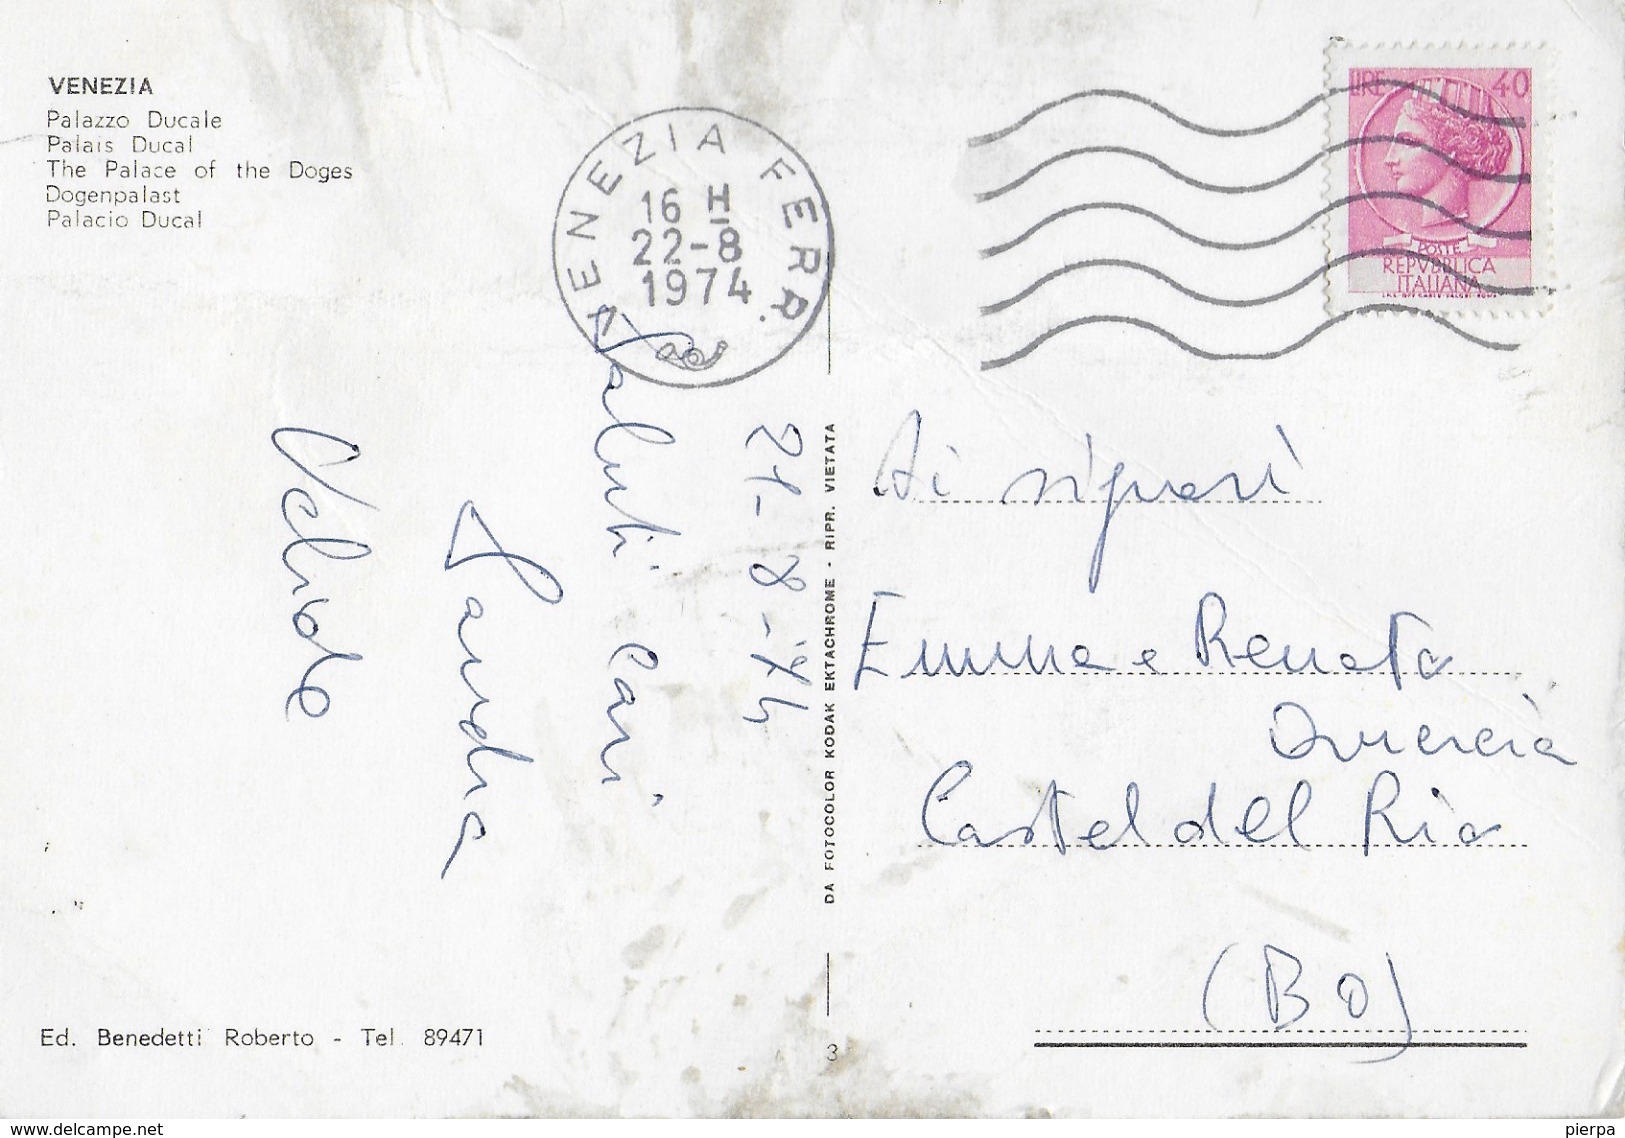 VENEZIA
Palazzo Ducale
Palais Ducal
The Palace of the Doges
Dogenpalast
Palacio Ducal
VENEZIA FERR.
16 H
22-8
1974
LIRE 40
POSTE
REPVBBLICA
ITALIANA
21-8-'74
Saluti cari
Sandra
DA FOTOCOLOR KODAK EKTACHROME - RIPR. VIETATA
Ai signori
Emma e Renata
Quercia
Castel del Rio
(BO)
Ed. Benedetti Roberto - Tel. 89471
3
www.delcampe.net
pierpa